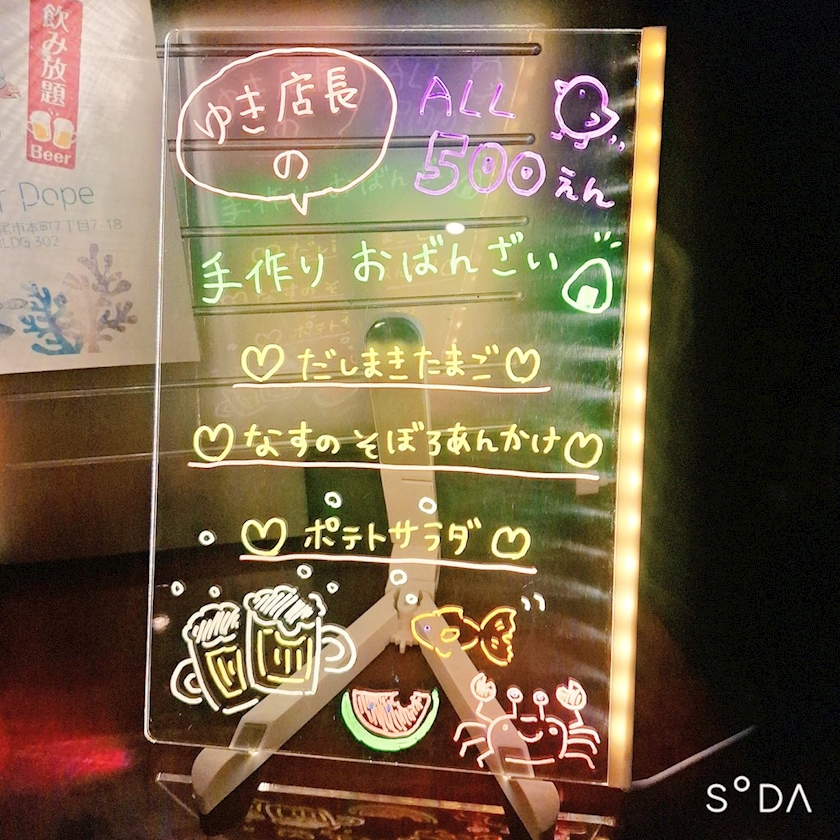 飲み放題
Beer
r Dope
尾市本町7丁目7-18
BLDG 302
ゆき店長
の
ALL
500えん
手作り おばんざい
だしまきたまご
なすのそぼろあんかけ
ポテトサラダ
SODA